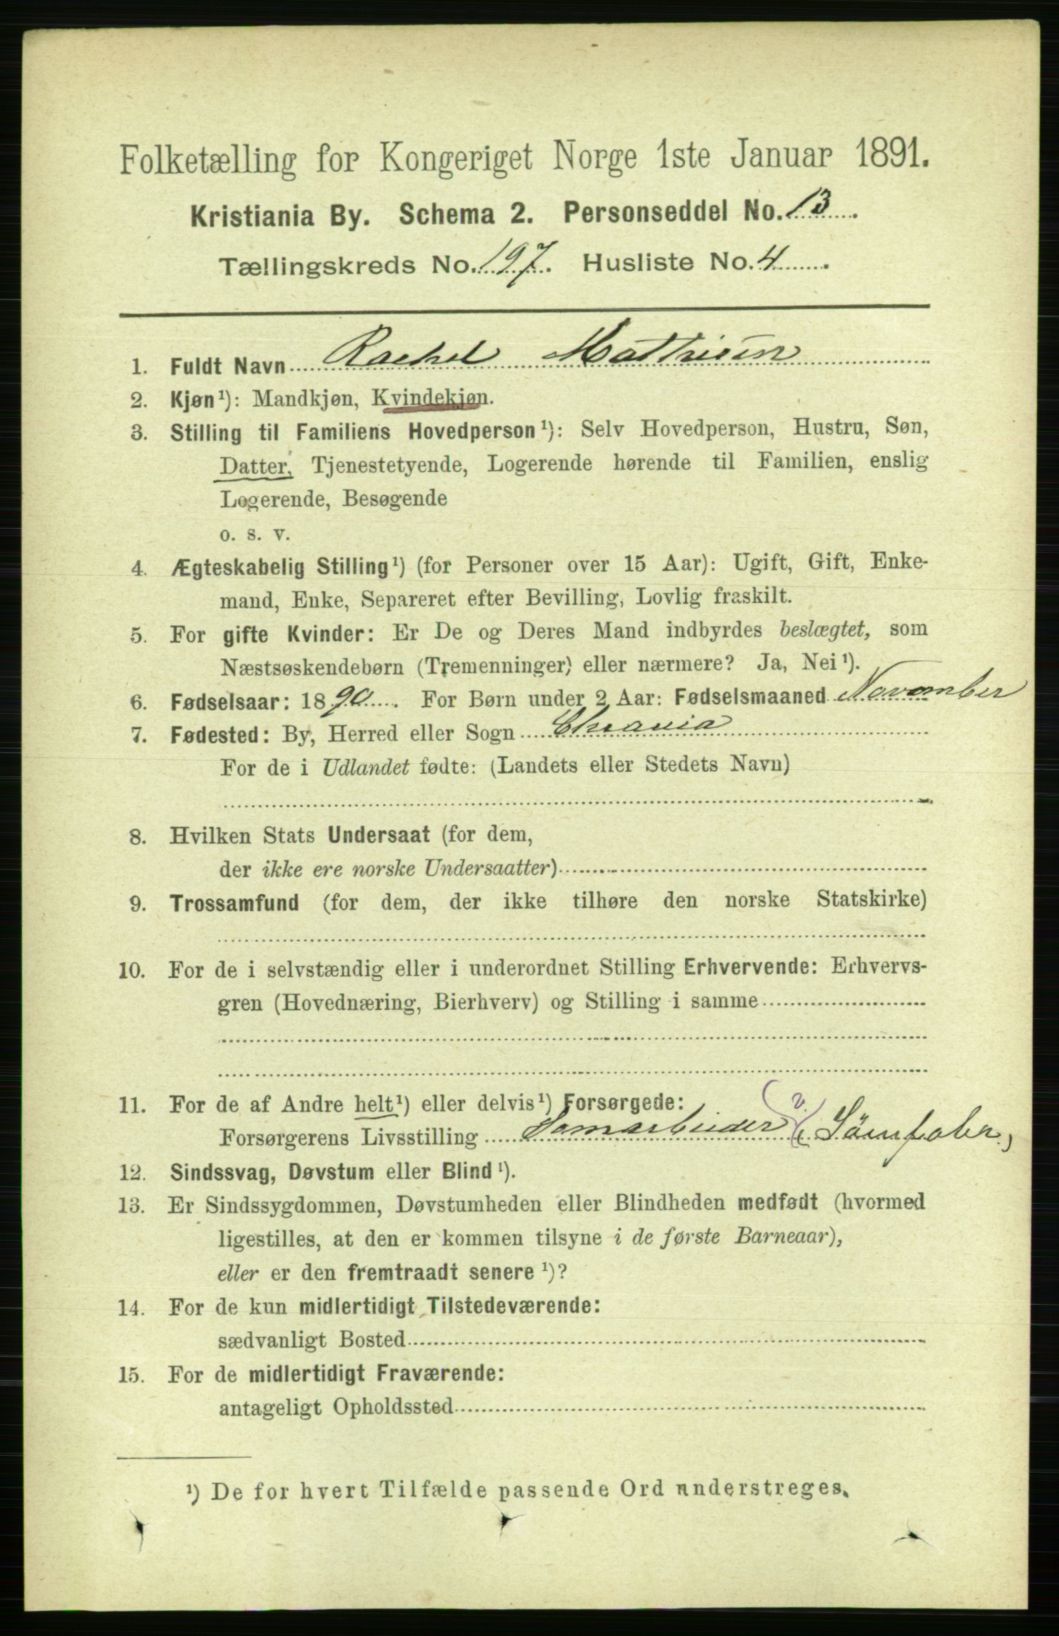 Folketælling for Kongeriget Norge 1ste Januar 1891.
Kristiania By. Schema 2. Personseddel No. 13.
Tællingskreds No. 197. Husliste No. 4.
1. Fuldt Navn Rachel Mathisen
2. Kjøn¹): Mandkjøn, Kvindekjøn.
3. Stilling til Familiens Hovedperson¹): Selv Hovedperson, Hustru, Søn,
Datter, Tjenestetyende, Logerende hørende til Familien, enslig
Logerende, Besøgende
o. s. v.
4. Ægteskabelig Stilling¹) (for Personer over 15 Aar): Ugift, Gift, Enke-
mand, Enke, Separeret efter Bevilling, Lovlig fraskilt.
5. For gifte Kvinder: Er De og Deres Mand indbyrdes beslægtet, som
Næstsøskendebørn (Tremenninger) eller nærmere? Ja, Nei¹).
6. Fødselsaar: 1890. For Børn under 2 Aar: Fødselsmaaned November
7. Fødested: By, Herred eller Sogn Chrania
For de i Udlandet fødte: (Landets eller Stedets Navn)
8. Hvilken Stats Undersaat (for dem,
der ikke ere norske Undersaatter)
9. Trossamfund (for dem, der ikke tilhøre den norske Statskirke)
10. For de i selvstændig eller i underordnet Stilling Erhvervende: Erhvervs-
gren (Hovednæring, Bierhverv) og Stilling i samme
11. For de af Andre helt¹) eller delvis¹) Forsørgede:
Forsørgerens Livsstilling v.
12. Sindssvag, Døvstum eller Blind¹).
13. Er Sindssygdommen, Døvstumheden eller Blindheden medfødt (hvormed
ligestilles, at den er kommen tilsyne i de første Barneaar),
eller er den fremtraadt senere¹)?
14. For de kun midlertidigt Tilstedeværende:
sædvanligt Bosted
15. For de midlertidigt Fraværende:
antageligt Opholdssted
¹) De for hvert Tilfælde passende Ord understreges.